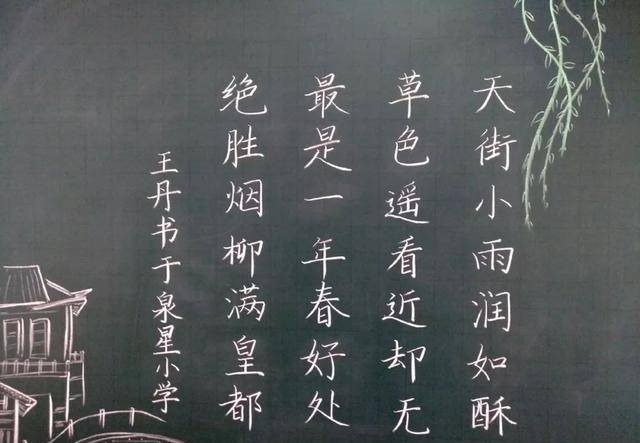 天街小雨润如酥
草色遥看近却无
最是一年春好处
绝胜烟柳满皇都
王丹书于泉星小学